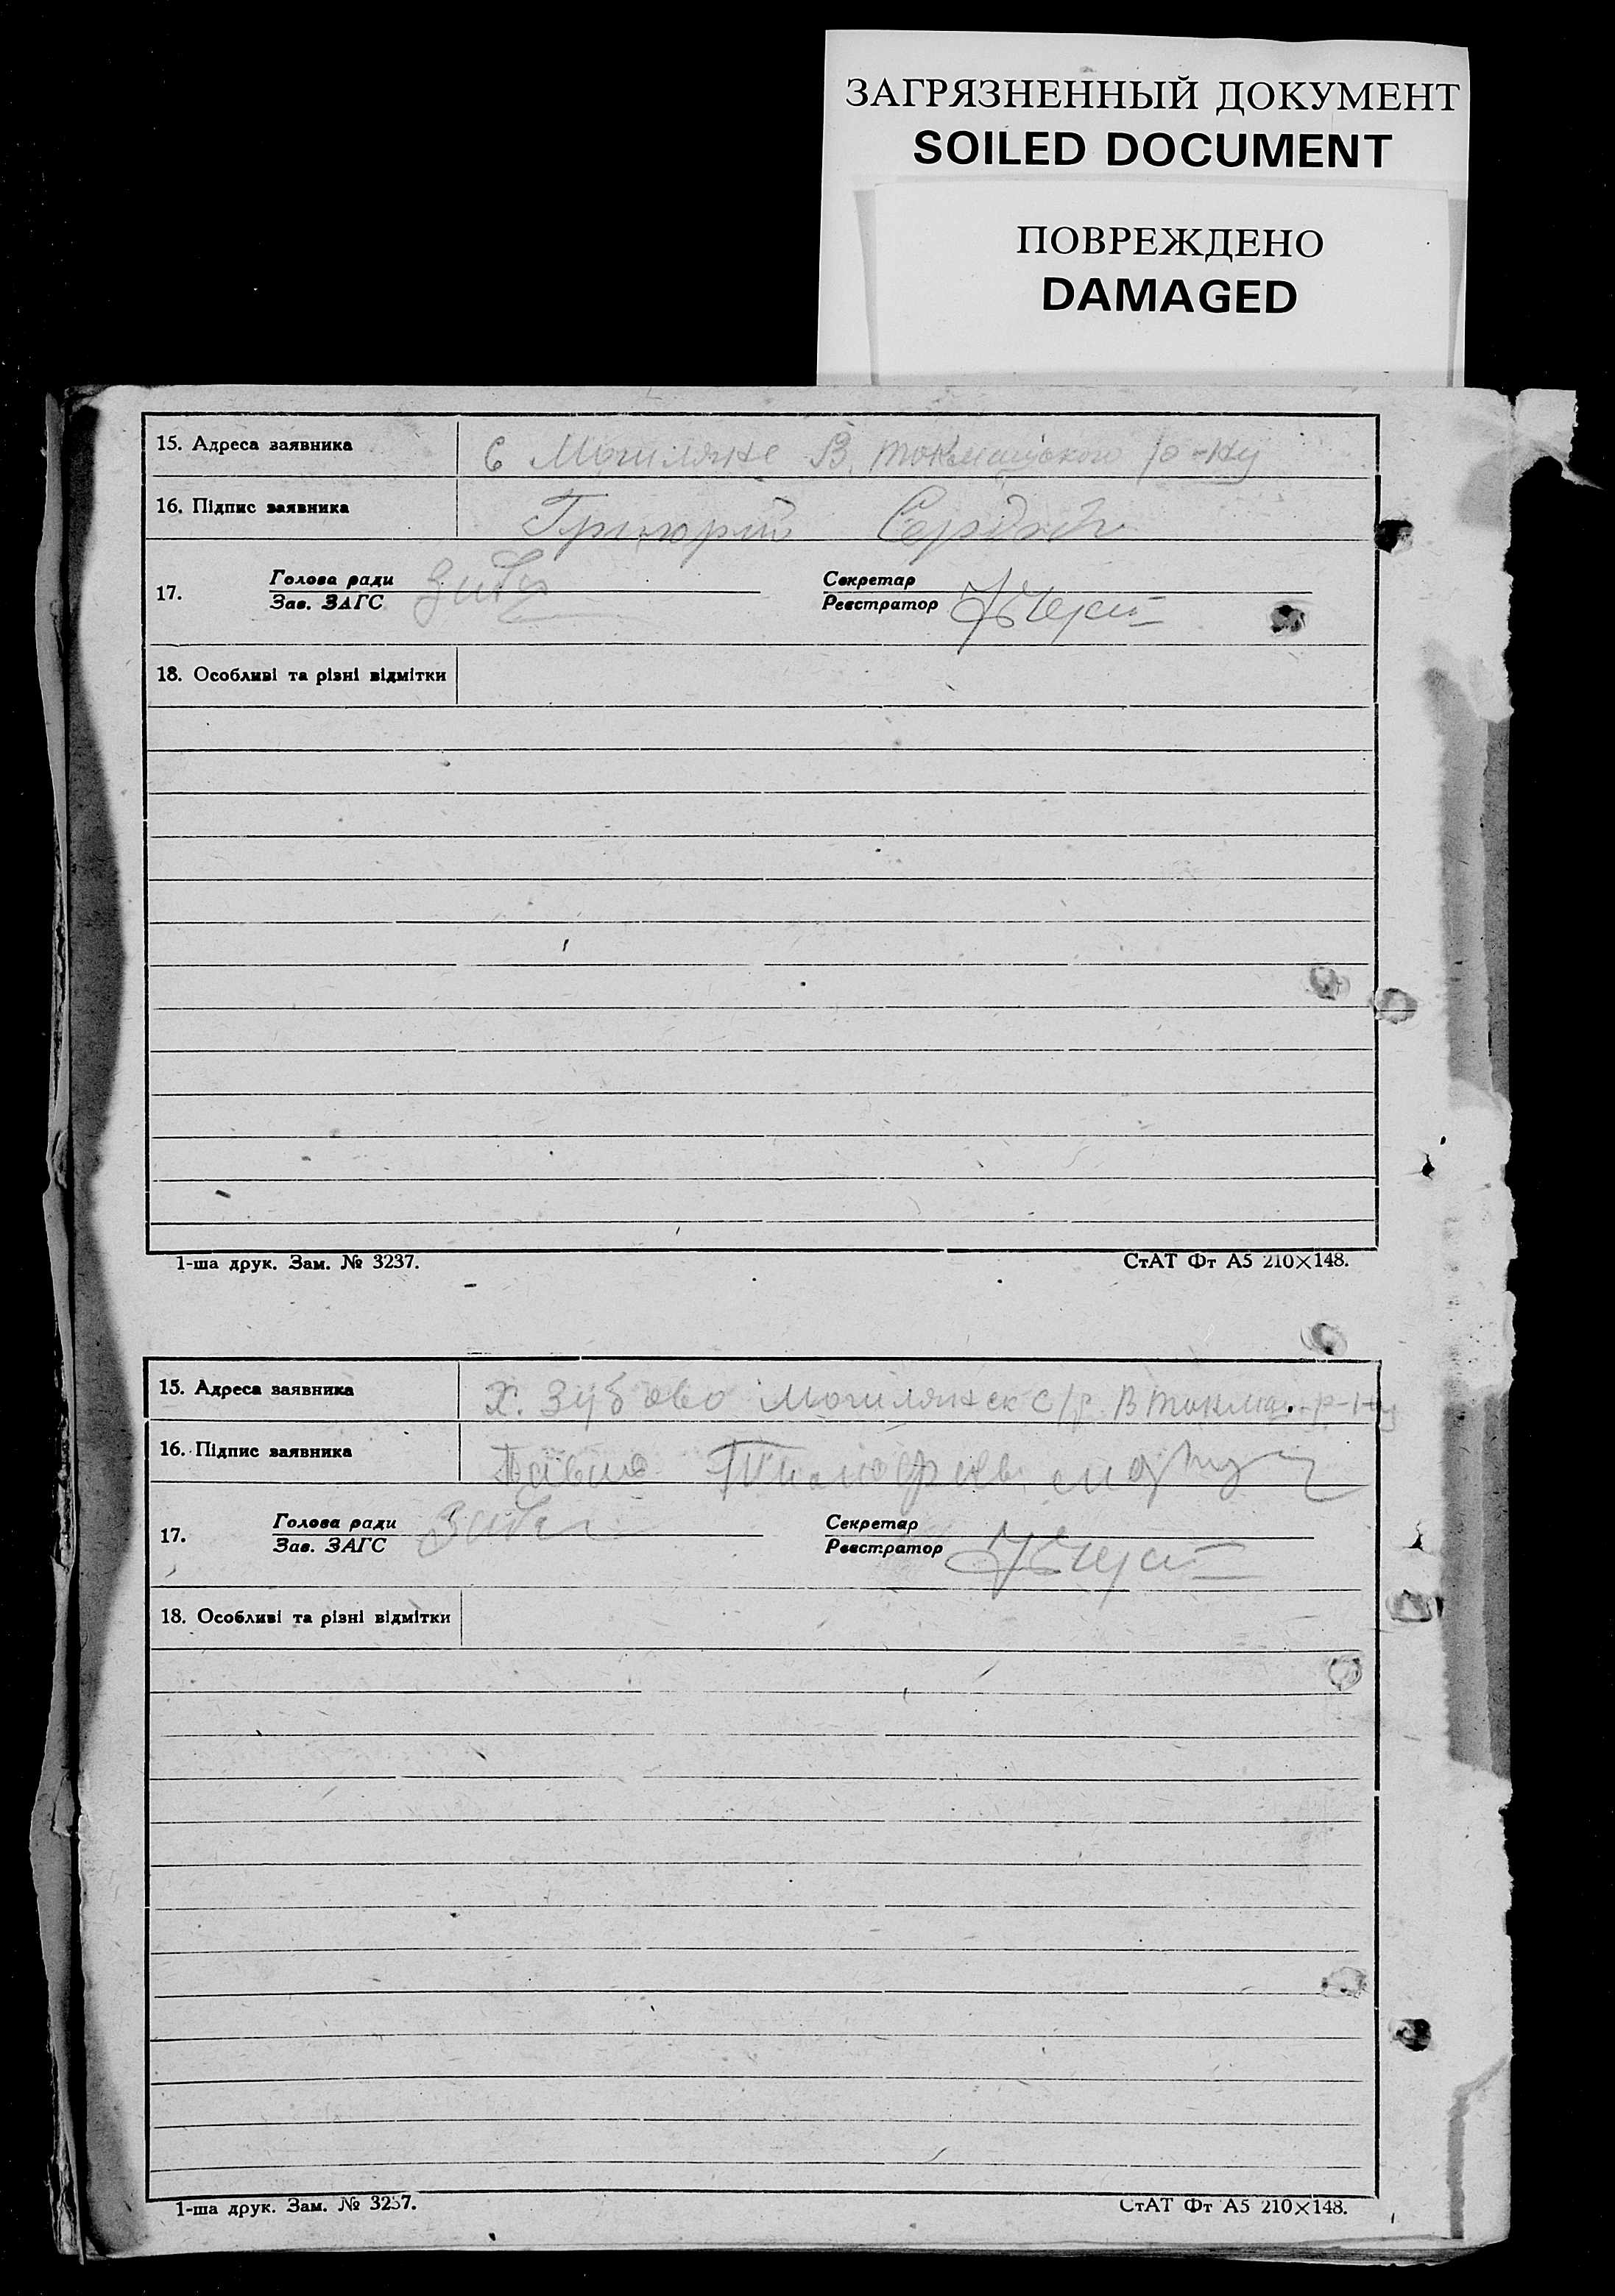 ЗАГРЯЗНЕННЫЙ ДОКУМЕНТ
SOILED DOCUMENT
ПОВРЕЖДЕНО
DAMAGED
15. Адреса заявника С Могиляне В. Токмацького р-ну
16. Підпис заявника Григорій
17. Голова ради
Зав. ЗАГС
Секретар
Реєстратор
18. Особливі та різні відмітки
1-ша друк. Зам. № 3237.
СтАТ Фт А5 210×148.
15. Адреса заявника Х. Зубово Могилянск с/р. В Токмац. р-ну
16. Підпис заявника
17. Голова ради
Зав. ЗАГС
Секретар
Реєстратор
18. Особливі та різні відмітки
1-ша друк. Зам. № 3237.
СтАТ Фт А5 210×148.